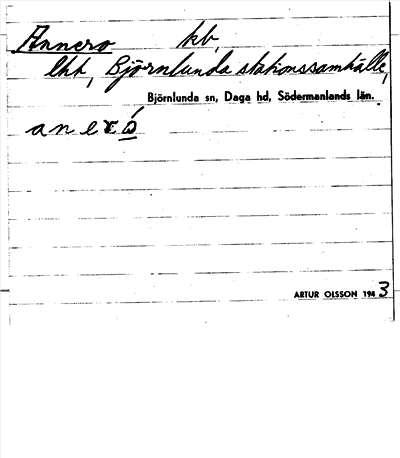 Annero kb,
lht, Björnlunda stationssamhälle,
Björnlunda sn, Daga hd, Södermanlands län.
ARTUR OLSSON 1943